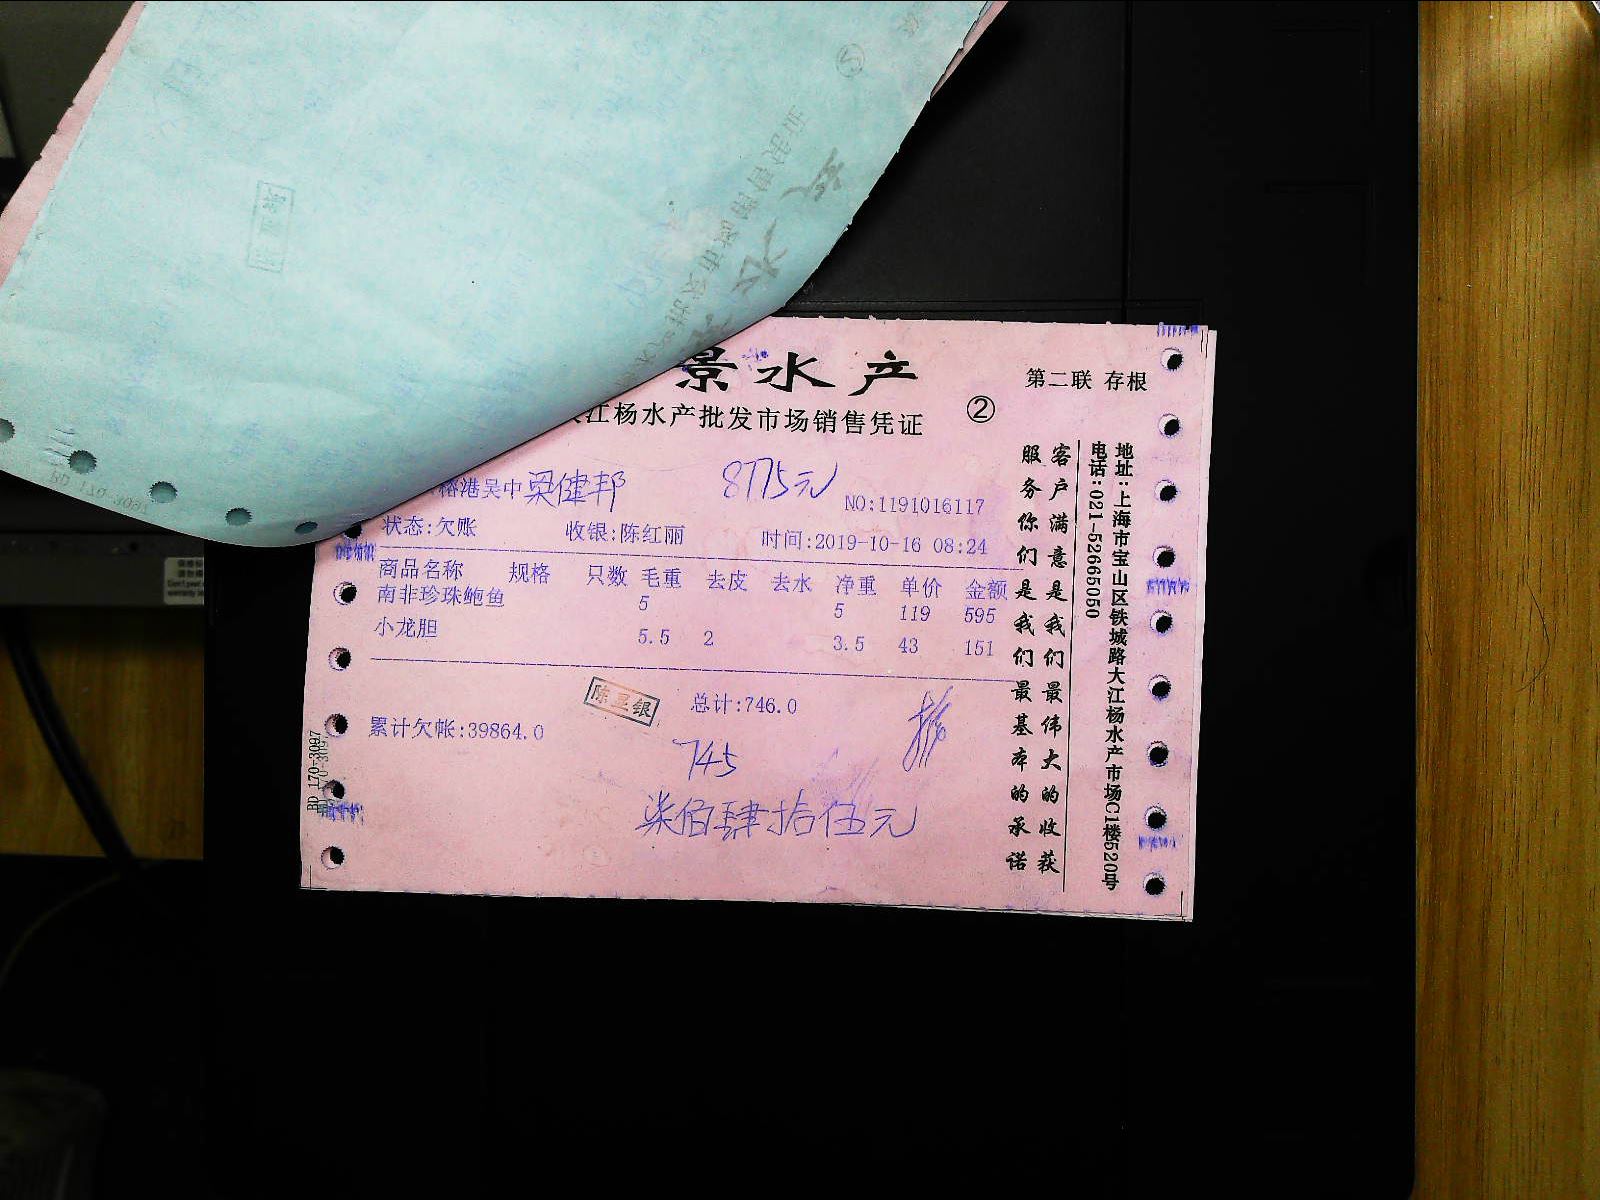 景水产
江杨水产批发市场销售凭证
②
第二联 存根
港吴中梁健邦
8775元
NO:1191016117
状态:欠账 收银:陈红丽 时间:2019-10-16 08:24
商品名称 规格 只数 毛重 去皮 去水 净重 单价 金额
南非珍珠鲍鱼 5 5 119 595
小龙胆 5.5 2 3.5 43 151
陈显银
总计:746.0
累计欠帐:39864.0
745
柒佰肆拾伍元
客户满意是我们最伟大的收获
服务你们是我们最基本的承诺
地址:上海市宝山区铁城路大江杨水产市场C1楼520号
电话:021-52665050
BD 170-3097